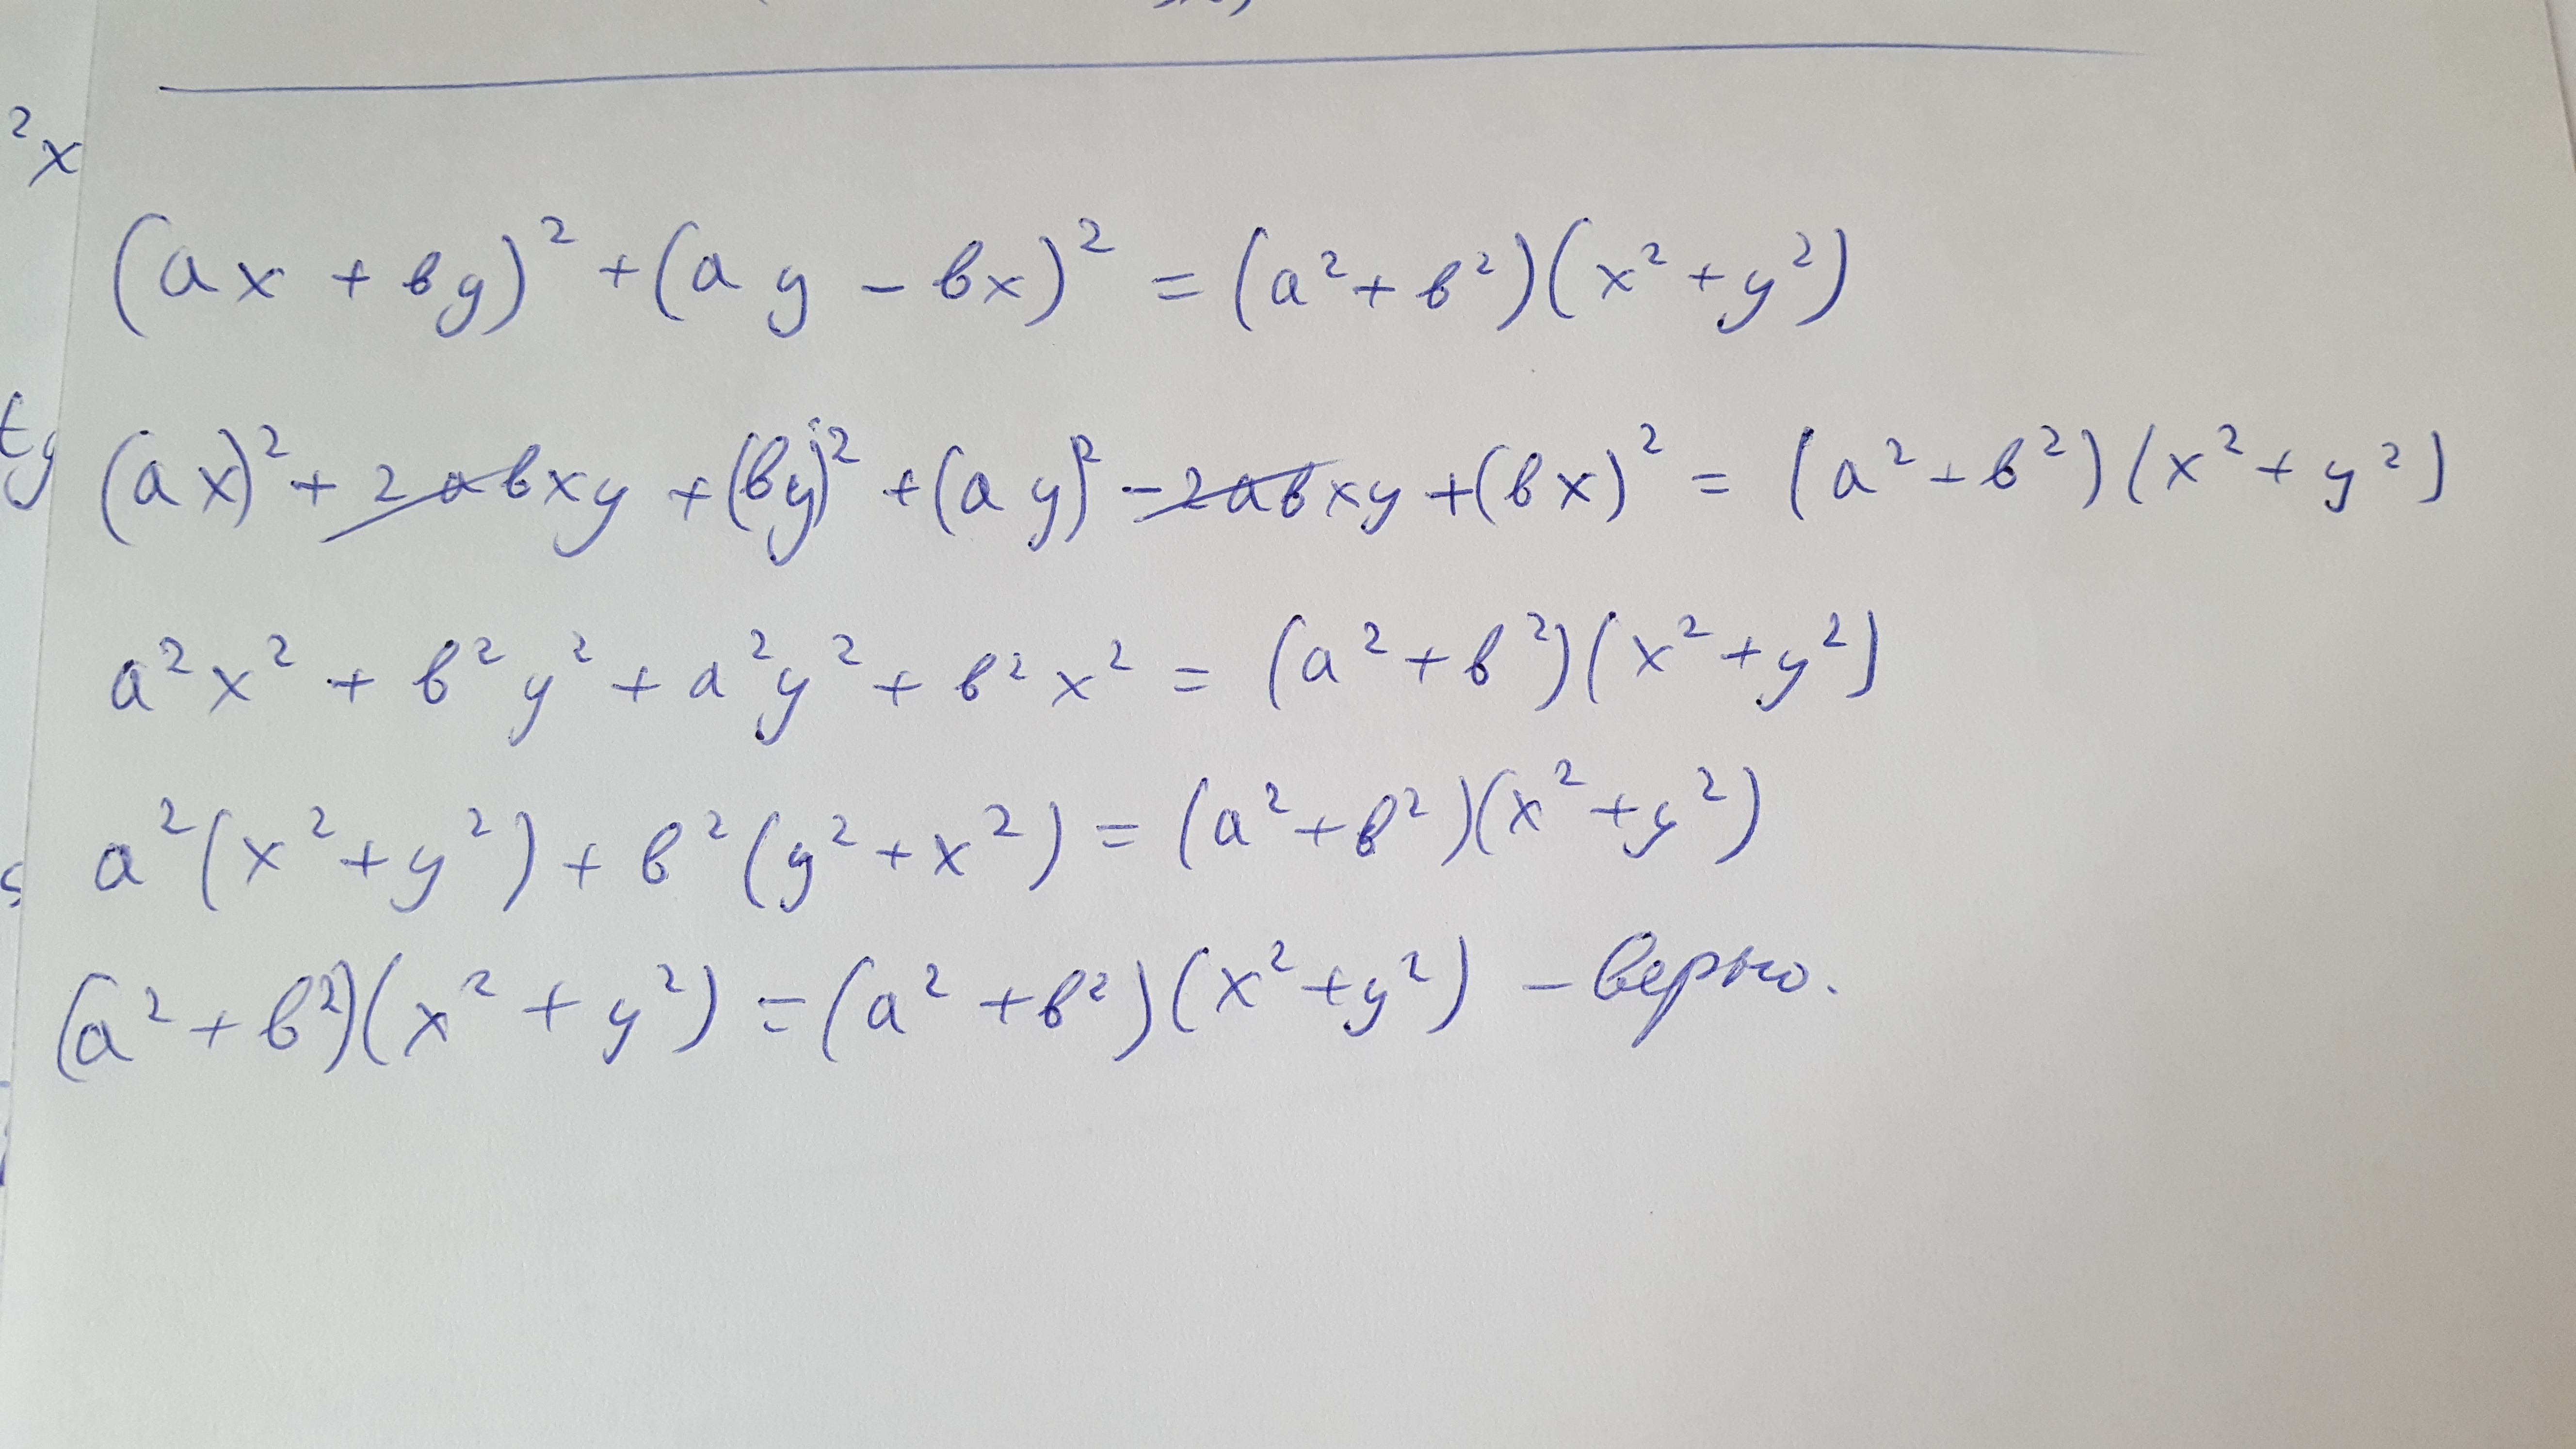 (ax + вy)² + (ay - вx)² = (a² + в²)(x² + y²)
(ax)² + 2aвxy + (вy)² + (ay)² - 2aвxy + (вx)² = (a² + в²)(x² + y²)
a²x² + в²y² + a²y² + в²x² = (a² + в²)(x² + y²)
a²(x² + y²) + в²(y² + x²) = (a² + в²)(x² + y²)
(a² + в²)(x² + y²) = (a² + в²)(x² + y²) - верно.
²x